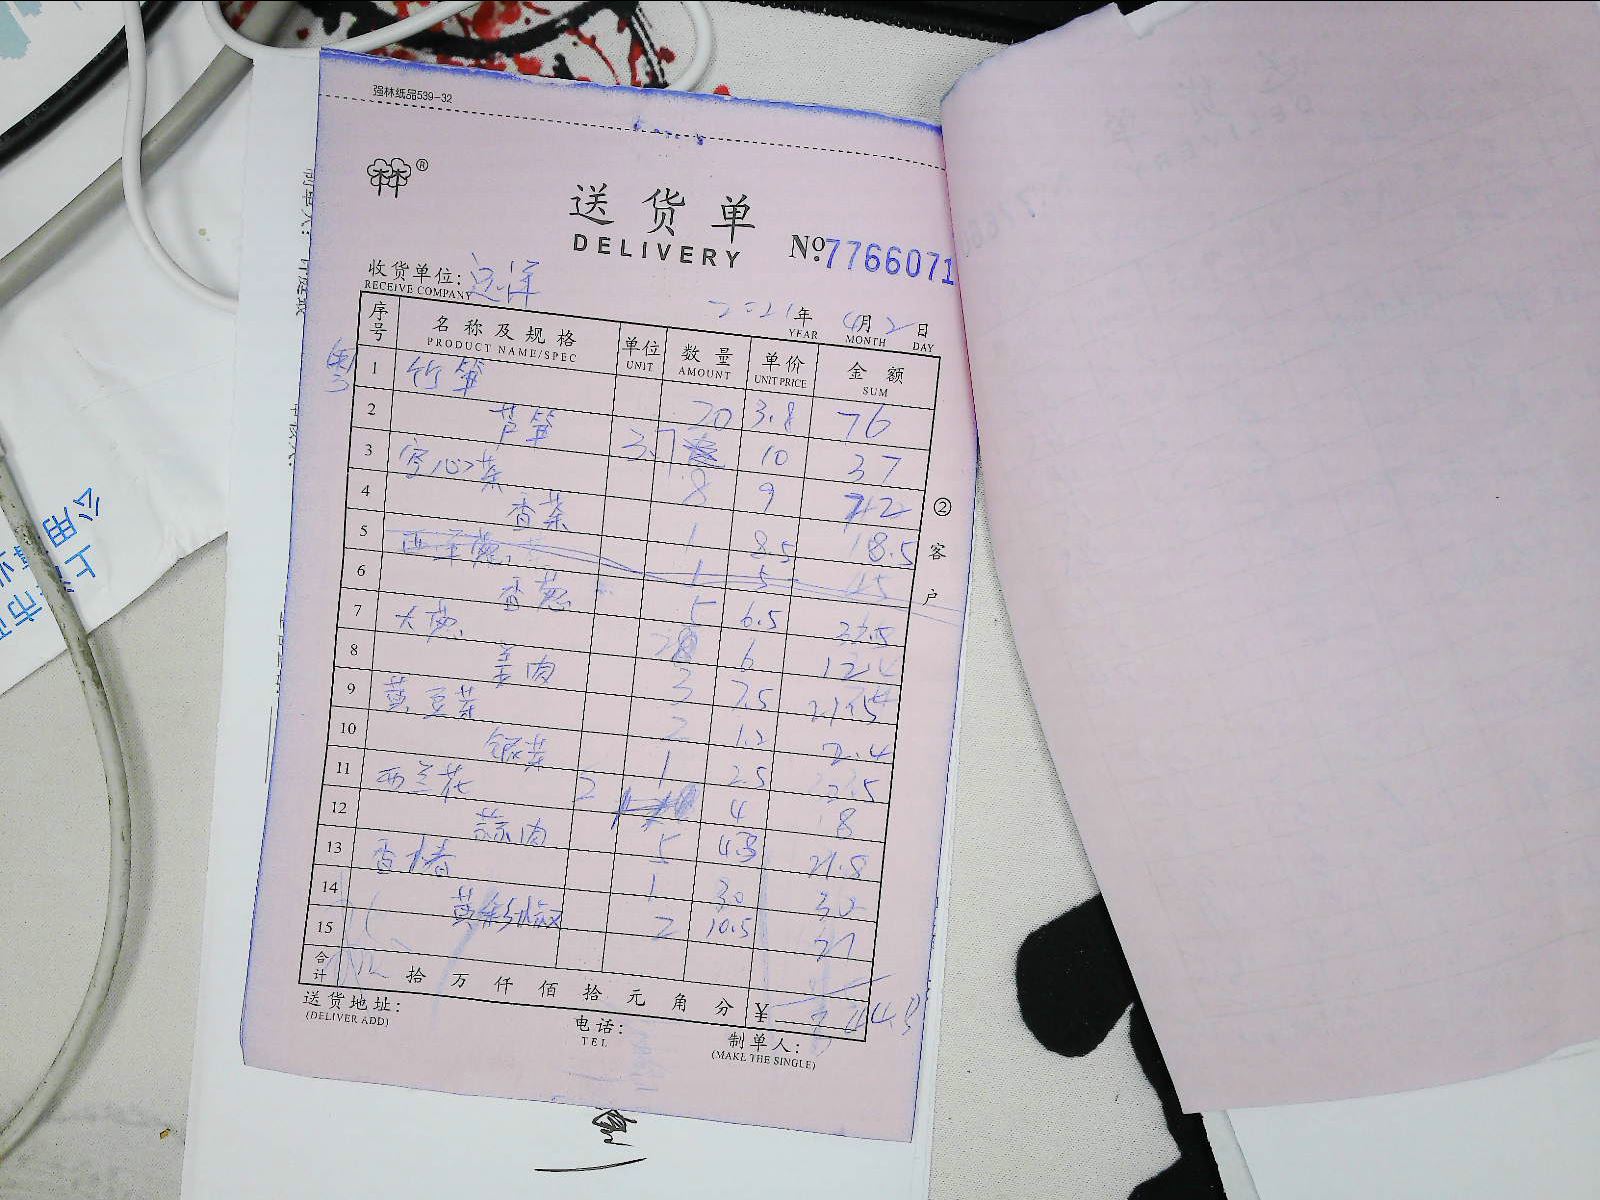 强林纸品539-32
林®
送货单
DELIVERY
№7766071
收货单位: 远洋
RECEIVE COMPANY
2021年 4月 2日
YEAR MONTH DAY
序号 名称及规格 单位 数量 单价 金额
PRODUCT NAME/SPEC UNIT AMOUNT UNIT PRICE SUM
1 竹笋 20 3.8 76
2 芦笋 3.7 10 37
3 空心菜 8 9 72
4 香菜 1 8.5 8.5
5 1 5
6 香葱 5 6.5 32.5
7 大葱 6 12.4
8 姜肉 3 7.5
9 黄豆芽 2 1.2 2.4
10 银芽 1 2.5 2.5
11 西兰花 2 4 8
12 蒜肉 5 21.8
13 香椿 1 30 30
14 黄彩椒 2 10.5 21
15
合计 拾万仟佰拾元角分 ¥
②客户
送货地址:
(DELIVER ADD)
电话:
TEL
制单人:
(MAKE THE SINGLE)
公用